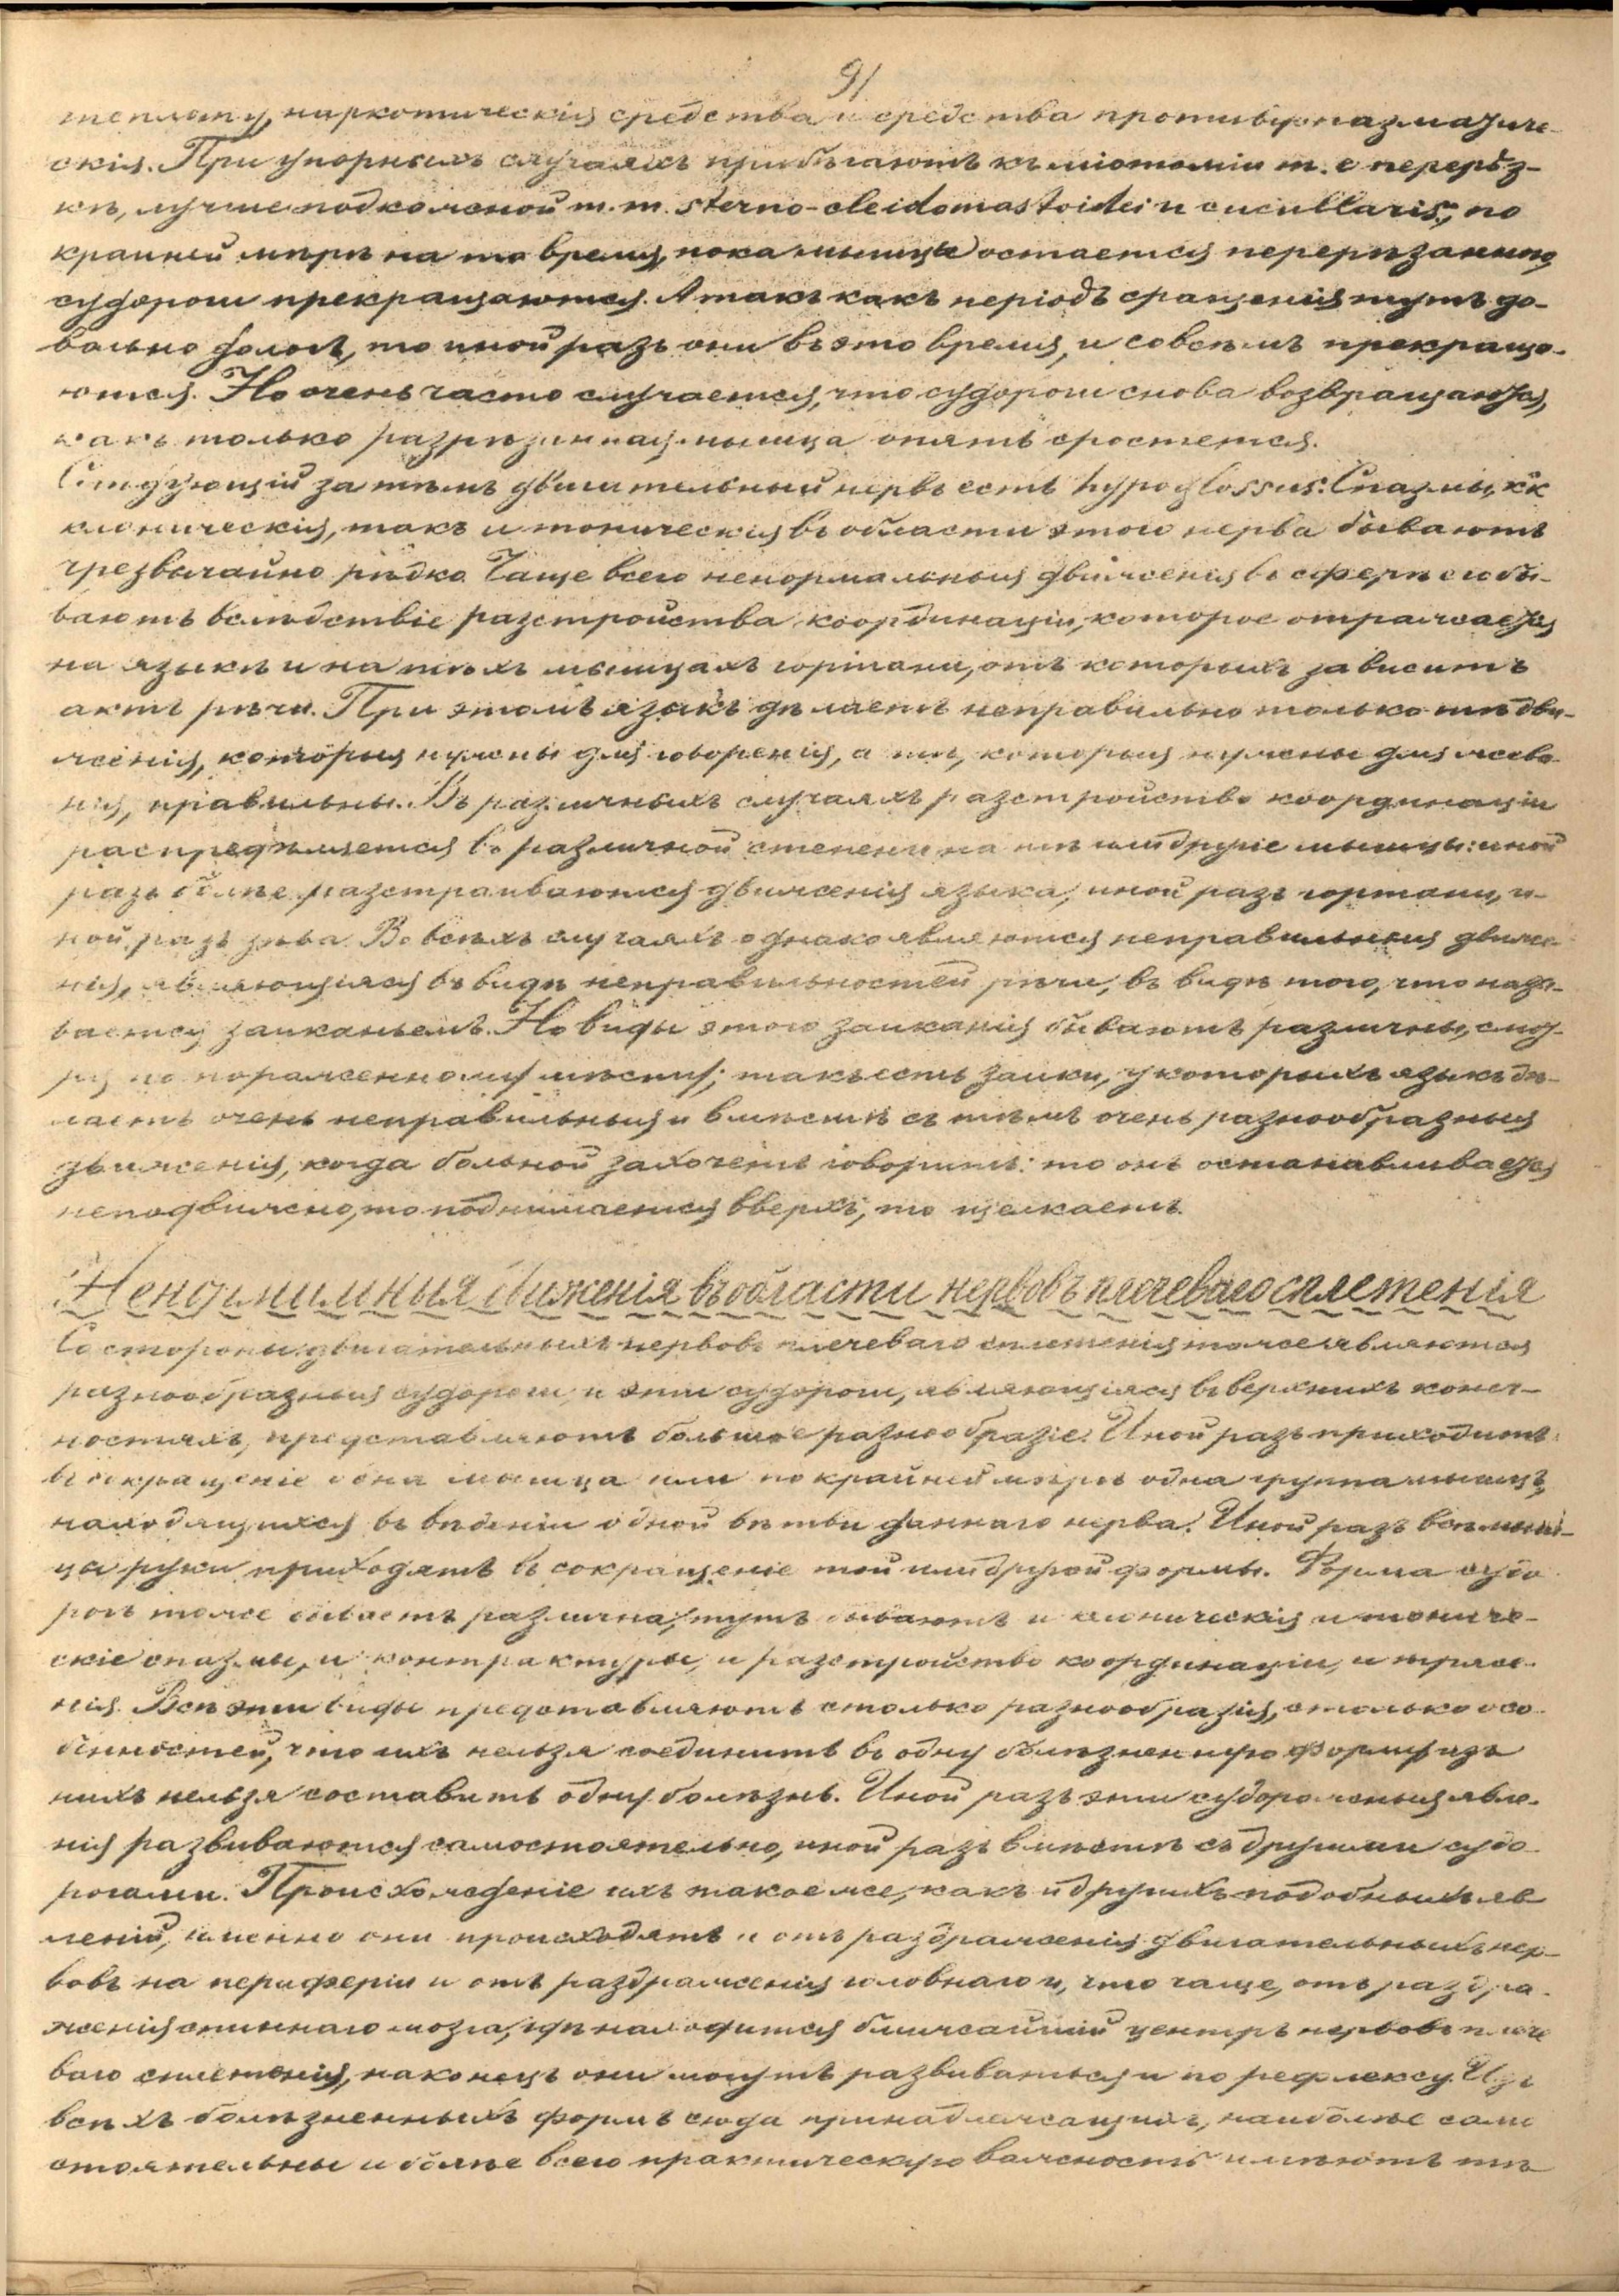 91
теплоту, наркотическія средства и средства противуспазмазиче-
скія. При упорныхъ случаяхъ прибѣгаютъ къ міотоміи т. е перерѣз-
кѣ, лучше подкожной m. m. sterno-cleidomastoidei и cucullaris; по
крайней мѣрѣ на то время, пока мышца остается перерѣзанною,
судороги прекращаются. А такъ какъ періодъ сращенія тутъ до-
вольно дологъ, то иной разъ они въ это время, и совсѣмъ прекраща-
ются. Но очень часто случается, что судороги снова возвращаются,
какъ только разрѣзанная мышца опять сростется.
Слѣдующій за тѣмъ двигательный нервъ есть hypoglossus. Спазмы, кк
клоническія, такъ и тоническія въ области этого нерва бываютъ
чрезвычайно рѣдко. Чаще всего ненормальныя движенія въ сферѣ его бы-
ваютъ вслѣдствіе разстройства координаціи, которое отражается
на языкѣ и на тѣхъ мышцахъ гортани, отъ которыхъ зависитъ
актъ рѣчи. При этомъ языкъ дѣлаетъ неправильно только тѣ дви-
женія, которыя нужны для говоренія, а тѣ, которыя нужны для жева-
нія, правильны. Въ различныхъ случаяхъ разстройство координаціи
распредѣляется въ различной степени на тѣ или другіе мышцы: иной
разъ болѣе разстраиваются движенія языка, иной разъ гортани, и-
ной разъ зѣва. Во всѣхъ случаяхъ однако являются неправильныя движе-
нія, являющіяся въ видѣ неправильностей рѣчи, въ видѣ того, что назы-
вается заиканьемъ. Но виды этого заиканія бываютъ различны, смот-
ря по пораженному мѣсту; такъ есть заики, у которыхъ языкъ дѣ-
лаетъ очень неправильныя и вмѣстѣ съ тѣмъ очень разнообразныя
движенія, когда больной захочетъ говорить: то онъ останавливается
неподвижно, то поднимается вверхъ, то щелкаетъ.
Ненормальныя движенія въ области нервовъ плечеваго сплетенія
Со стороны двигательныхъ нервовъ плечеваго сплетенія тоже являются
разнообразныя судороги, и эти судороги, являющіяся въ верхнихъ конеч-
ностяхъ, представляютъ большое разнообразіе. Иной разъ приходитъ
въ сокращеніе одна мышца или по крайней мѣрѣ одна группа мышцъ,
находящихся въ вѣденіи одной вѣтви даннаго нерва. Иной разъ всѣ мыш-
цы руки приходятъ въ сокращеніе той или другой формы. Форма судо-
рогъ тоже бываетъ различна, тутъ бываютъ и клоническія и тониче-
скіе спазмы, и контрактуры, и разстройство координаціи, и трясе-
нія. Всѣ эти виды представляютъ столько разнообразія, столько осо-
бенностей, что ихъ нельзя соединить въ одну болѣзненную форму, изъ
нихъ нельзя составить одну болѣзнь. Иной разъ эти судорожныя явле-
нія развиваются самостоятельно, иной разъ вмѣстѣ съ другими судо-
рогами. Происхожденіе ихъ такое же, какъ и другихъ подобныхъ яв
леній, именно они происходятъ и отъ раздраженія двигательныхъ нер-
вовъ на периферіи и отъ раздраженія головнаго и, что чаще, отъ раздра-
женія спиннаго мозга, гдѣ находится ближайшій центръ нервовъ плече
ваго сплетенія, наконецъ они могутъ развиваться и по рефлексу. Изъ
всѣхъ болѣзненныхъ формъ сюда принадлежащихъ, наиболѣе само
стоятельны и болѣе всего практическую важность имѣютъ тѣ